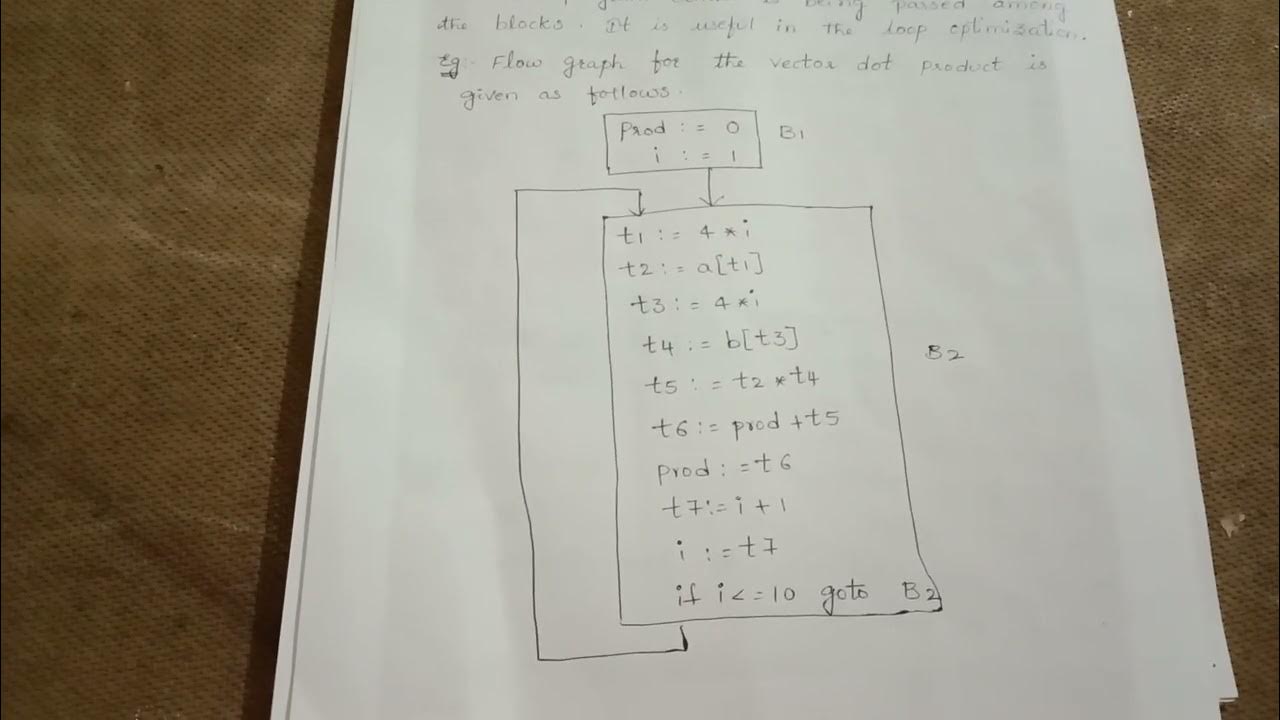 is being passed among
the blocks. It is useful in the loop optimization.
Eg. Flow graph for the vector dot product is
given as follows.
Prod := 0
i := 1
B1
t1 := 4 * i
t2 := a[t1]
t3 := 4 * i
t4 := b[t3]
t5 := t2 * t4
t6 := prod + t5
prod := t6
t7 := i + 1
i := t7
if i <= 10 goto B2
B2